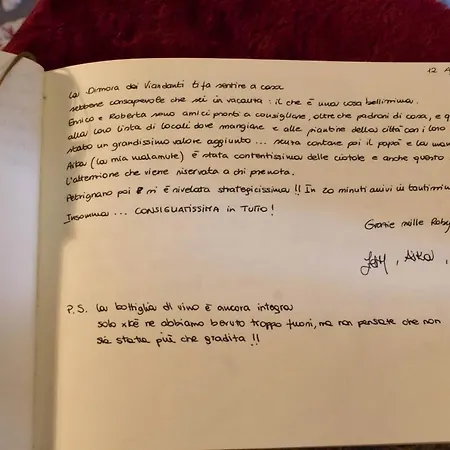 12 A
La Dimora dei Viandanti ti fa sentire a casa
sebbene consapevole che sei in vacanza : il che è una cosa bellissima.
Enrico e Roberta sono amici pronti a consigliare, oltre che padroni di casa, e q
alla loro lista di locali dove mangiare e alle piantine della città con i loro
stato un grandissimo valore aggiunto ... senza contare poi il papà e la mam
Aika (la mia malamute) è stata contentissima delle ciotole e anche questo
l'attenzione che viene riservata a chi prenota.
Petrignano poi si è rivelata strategicissima !! In 20 minuti arrivi in tantissim
Insomma ... CONSIGLIATISSIMA in TUTTO !
Grazie mille Roby
, Aika ,
P.S. La bottiglia di vino è ancora integra
solo xkè ne abbiamo bevuto troppo fuori, ma non pensate che non
sia stata più che gradita !!